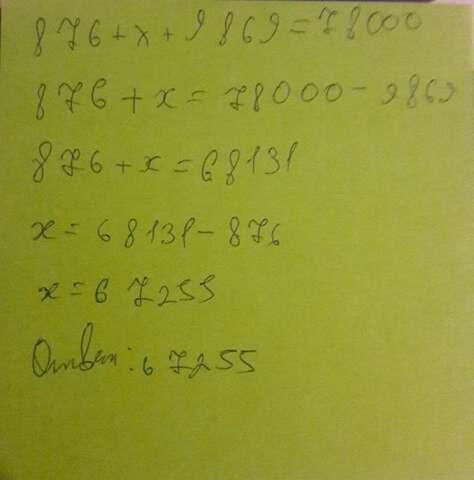 876+x+9869=78000
876+x=78000-9869
876+x=68131
x=68131-876
x=67255
Ответ: 67255